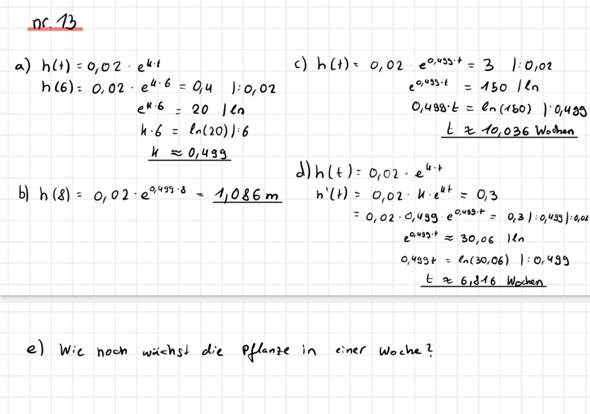 nr. 13
a) h(t) = 0,02 · e^k·t
h(6) = 0,02 · e^k·6 = 0,4 | : 0,02
e^k·6 = 20 | ln
k · 6 = ln(20) | : 6
k ≈ 0,499
b) h(8) = 0,02 · e^0,499·8 = 1,086 m
c) h(t) = 0,02 · e^0,499·t = 3 | : 0,02
e^0,499·t = 150 | ln
0,499 · t = ln(150) | : 0,499
t ≈ 10,036 Wochen
d) h(t) = 0,02 · e^k·t
h'(t) = 0,02 · k · e^kt = 0,3
= 0,02 · 0,499 · e^0,499·t = 0,3 | : 0,499 | : 0,02
e^0,499·t ≈ 30,06 | ln
0,499t = ln(30,06) | : 0,499
t ≈ 6,816 Wochen
e) Wie hoch wächst die Pflanze in einer Woche?